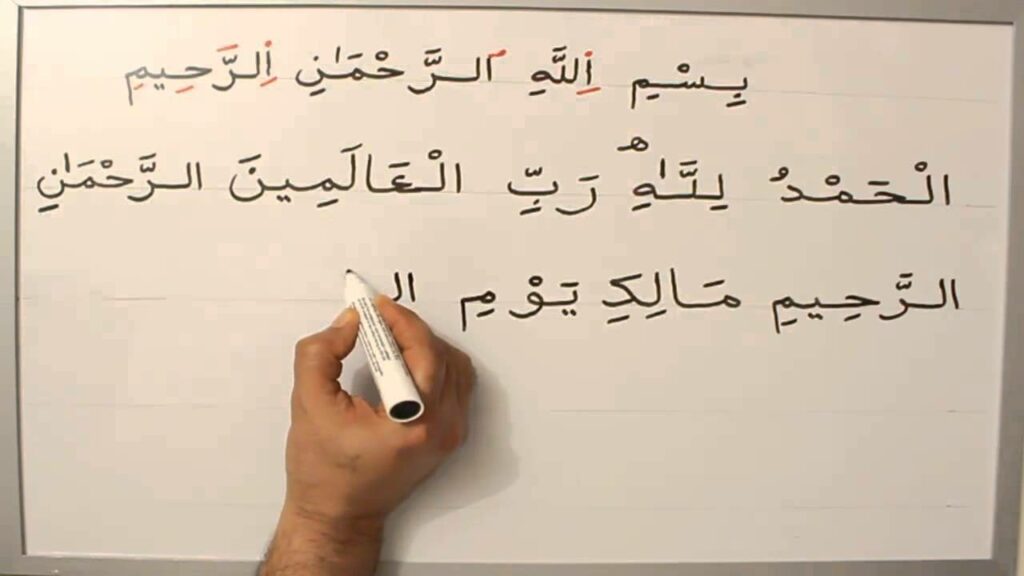 بِسْمِ اِللَّهِ الرَّحْمَٰنِ اِلرَّحِيمِ
الْحَمْدُ لِلَّٰهِ رَبِّ الْعَالَمِينَ الرَّحْمَٰنِ
الرَّحِيمِ مَالِكِ يَوْمِ الـ